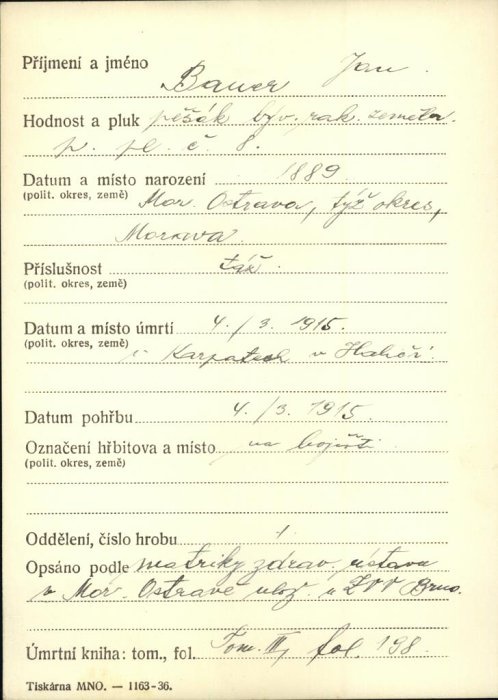 Příjmení a jméno Bauer Jan.
Hodnost a pluk pěšák býv. rak. zeměbr.
p. pl. č. 8.
Datum a místo narození 1889
(polit. okres, země) Mor. Ostrava, týž okres,
Morava.
Příslušnost táž.
(polit. okres, země)
Datum a místo úmrtí 4./3. 1915.
(polit. okres, země)
v Karpatech v Haliči.
Datum pohřbu 4./3. 1915
Označení hřbitova a místo na bojišti
(polit. okres, země)
Oddělení, číslo hrobu
Opsáno podle matriky zdrav. ústavu
v Mor. Ostravě ulož. u ZVV Brno.
Úmrtní kniha: tom., fol. Tom. III, fol. 198.
Tiskárna MNO. — 1163-36.